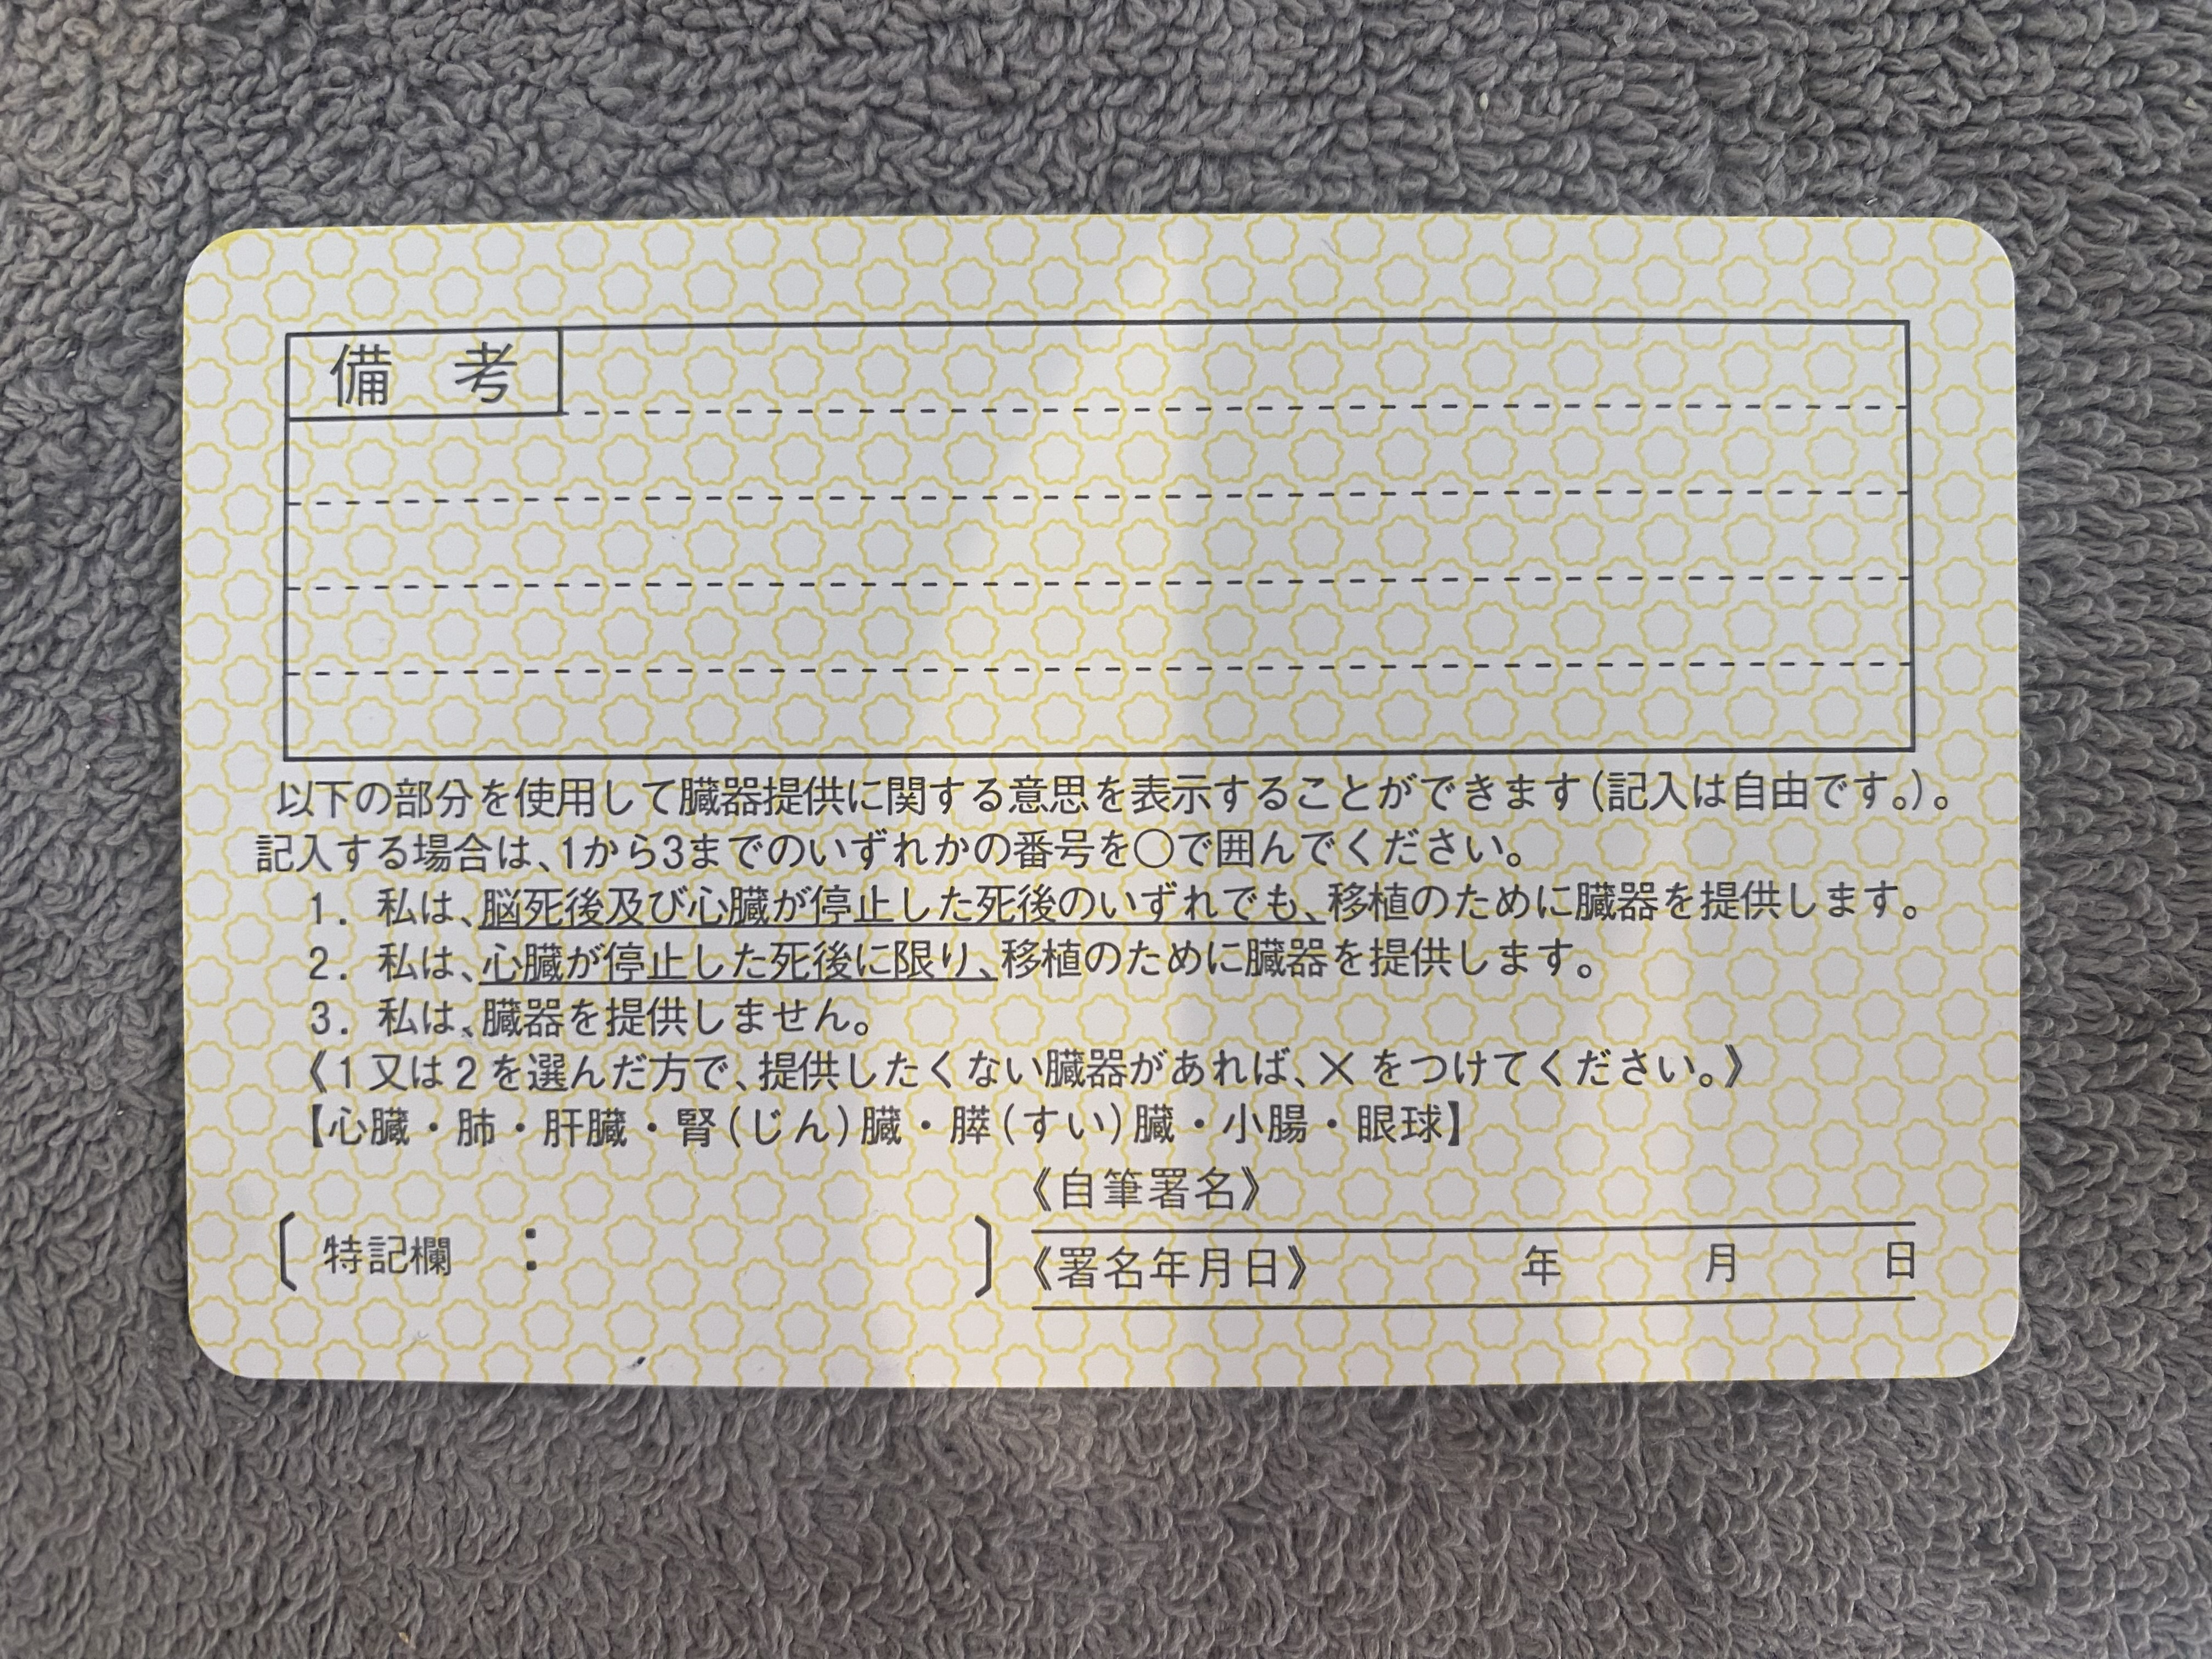 備 考
以下の部分を使用して臓器提供に関する意思を表示することができます(記入は自由です。)。
記入する場合は、1から3までのいずれかの番号を○で囲んでください。
1. 私は、脳死後及び心臓が停止した死後のいずれでも、移植のために臓器を提供します。
2. 私は、心臓が停止した死後に限り、移植のために臓器を提供します。
3. 私は、臓器を提供しません。
《1又は2を選んだ方で、提供したくない臓器があれば、×をつけてください。》
【心臓・肺・肝臓・腎(じん)臓・膵(すい)臓・小腸・眼球】
〔特記欄 : 〕
《自筆署名》
《署名年月日》 年 月 日